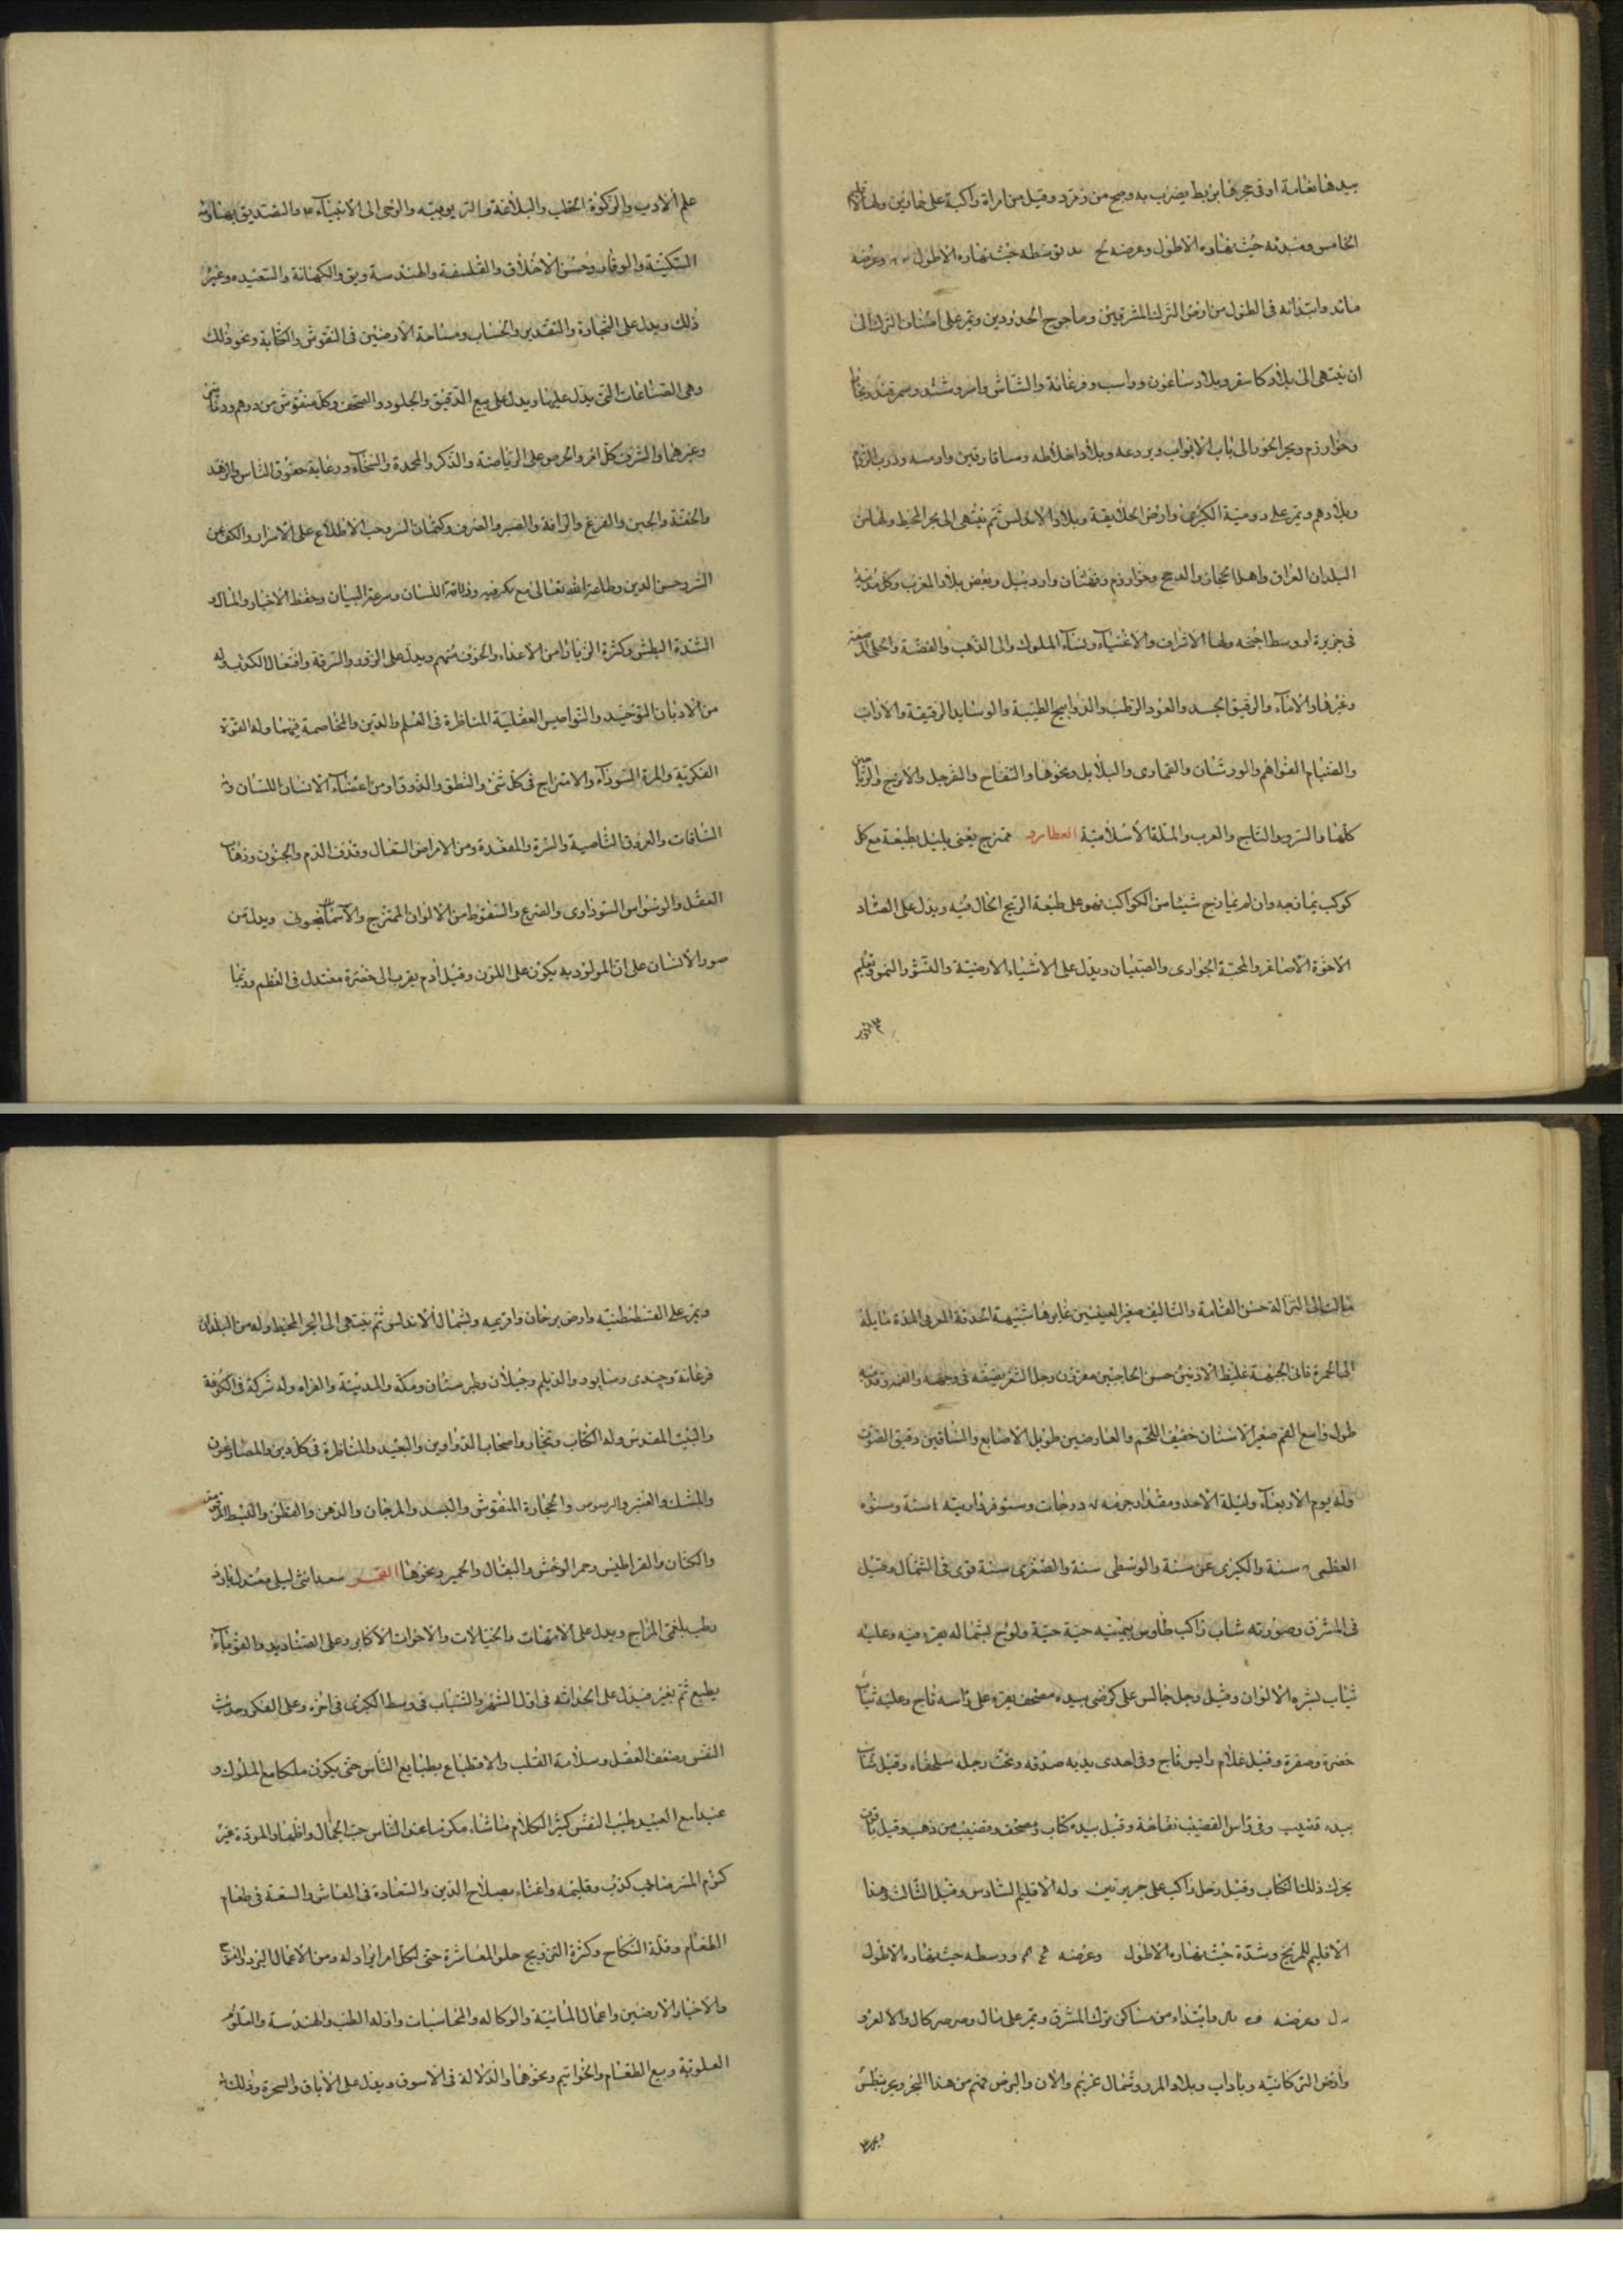 بيدها نفامة او في حجرها بربط يضرب به وهى من زمرد وقيل من امراة راكبة على حمارين ولها الاقليم
الخامس ومبدئه حيث نهاره الاطول وعرضه توسطه حيث نهاره الاطول وعرضه
وابتدائه فى الطول من ارض الترك المشرقيين وماجوج المحدودين وتمر على اصناف الترك الى
ان ينتهى الى بلاد كاسغر وبلاد ساغون وراسب وفرغانة والشاش واسروشنه وسمرقند وبخارا
وخوارزم وبحر الخزر الى باب الابواب وبردعه وبلاد اخلاطه وميافارقين وارمينه ودروب الروم
وبلادهم وتمر على رومية الكبرى وارض الجلايقة وبلاد الاندلس ثم ينتهى الى بحر المحيط ولها من
البلدان العراق واهل الحجاز وخوارزم وقهستان واردبيل وبعض بلاد المغرب وكل مدينة
فى جزيرة او وسط اجمة ولها الاشراف والاغنياء ونساء الملوك والى الذهب والفضة والحلى
وغيرها والاماء والرقيق الجسد والعود الرطب والروايح الطيبة والوسايد الرقيقة والاراب
والفواهم والورشان والقمارى والبلابل ونحوها والتفاح والسفرجل والاترنج والرياحين
كلها والسرو والتاج والعرب والملة الاسلامية العطارد ممتزج يعنى يميل بطبعه مع كل
كوكب يمازجه وان لم يمازج شيئا من الكواكب فهو على طبيعة البرج الحال فيه ويدل على
الاخوة الاصاغر والمحبة الجوارى والصبيان ويدل على الاشياء الارضية والنشو والنمو وتعليم
علم الادب والبلاغة والربوبية والوحى الى الانبياء والتصديق
السكينة والوقار وحسن الاخلاق والفلسفة والهندسة والكهانة وغير
ذلك ويدل على التجارة والنقدين والحساب ومساحة الارضين فى النقوش والكتابة ونحو ذلك
وهى الصناعات التى يدل عليها ويدل على بيع الدقيق والجلود والصحف وكل منقوش من درهم ودينار
وغيرهما والشرف كل امر والحرص على الرياضة والذكر والمحمدة والسخاء ورعاية حقوق الناس والزهد
والعفة والجبن والفزع والرافة والصبر والصرف وكتمان السر وحب الاطلاع على الاسرار والكف عن
الشر وحسن الدين وطاعة الله تعالى مع مكر فيه وذلاقة اللسان وسرعة البيان وحفظ الاخبار
الشدة البطش وكثرة الزيان من الاعداء والخوف منهم ويدل على الزور والسرقة وافتعال الكتب له
من الاديان التوحيد والنواميس العقلية المناظرة فى العلم والدين والمخاصمة فيهما وله القوة
الفكرية والمرة السوداء والامتزاج فى كل شئ والنطق والذوق ومن اعضاء الانسان اللسان
الساقات والعروق والسرة والمقعدة ومن الامراض السعال وقذف الدم والجنون وذهاب
العقل والوسواس السوداوى والصرع والسقوط من الالوان الممتزج والآسمانجونى ويدل من
صور الانسان على ان المولود به يكون على اللون وقيل آدم يقرب الى خضرة معتدل فى العظم وربما
مالت الى النزالة حسن القامة والتاليف صغير العينين غايرها شبيهة الحدقة مايلة
الى الحمرة فانى الجبهة غليظ الاذنين حسن الحاجبين مقرون
طول واسع الفم صغير الاسنان خفيف اللحم والعارضين طويل الاصابع والساقين رقيق الصوت
وله يوم الاربعاء وليلة الاحد ومقدار جرمه ٧ درجات وسنو فرداريته سنة وسنوه
العظمى سنة والكبرى سنة والوسطى سنة والصغرى سنة قوى فى الشمال وقيل
فى المشرق وصورته شاب راكب طاوس بيمينه حية حية ولوح بشماله يقره فيه وعليه
ثياب الالوان وقيل رجل جالس على كرسى بيده مصحف يقره على راسه تاج وعليه ثياب
خضرة وصفرة وقيل غلام رايس تاج وفى احدى يديه صدفه وتحت رجله سلحفاء وقيل شاب
بيده قضيب وفى راس القضيب تفاحة وقيل بيده كتاب ومصحف وقضيب من ذهب وقيل
يحرك ذلك الكتاب وقيل رجل راكب على وله الاقليم السادس وقيل الثالث وهذا
الاقليم للمريخ وشدة حيث نهاره الاطول وعرضه ووسطه حيث نهاره الاطول
وعرضه وابتداء من مساكن ترك المشرق وتمر على
وارض التركمانيه وبلاد وشمال والان
وتمر على القسطنطنيه وارض برجان وافريجيه وبشمال الاندلس ثم ينتهى الى البحر المحيط وله من البلدان
فرغانة وسابور والديلم وجيلان وطبرستان ومكة والمدينة والعراق وله شركة فى الكوفة
والبيت المقدس وله الكتاب وتجار واصحاب الدواوين والعبيد والمناظرة فى كل دين والمصارعون
والمسك والعنبر والحجارة المنقوش والبسد والمرجان والدهن والقطن
والكتان والقراطيس وحمر الوحش والبغال والحمير ونحوها القمر سعد انثى ليلى معتدل بارد
رطب بلغمى المزاج ويدل على الامهات والخالات والاخوات الاكابر وعلى
يطبع ثم يغير فيدل على الحداثة فى اول الشهر والشباب فى وسط الكبرى فى اخره وعلى الفكر وحديث
النفس وضعف العقل وسلامة القلب والاقطباع بطبايع الناس حتى يكون ملكا مع الملوك و
عبدا مع العبيد طيب النفس كثير الكلام مكرما عند الناس حب الجمال واظهار المودة غير
كتوم السر صاحب كذب واغناء بصلاح الدين والسعادة فى المعاش والسعة فى طعام
الطعام وقلة النكاح وكثرة التزويج حلو المعاشرة حتى لكل امر يراد له ومن الاعمال
والاخبار الارضين واعمال المائية والوكاله والمحاسبات وله الطب والهندسة والعلوم
العلوية وبيع الطعام والخواتيم ونحوها والدلالة فى الاسوق ويدل على الاباق والسحرة